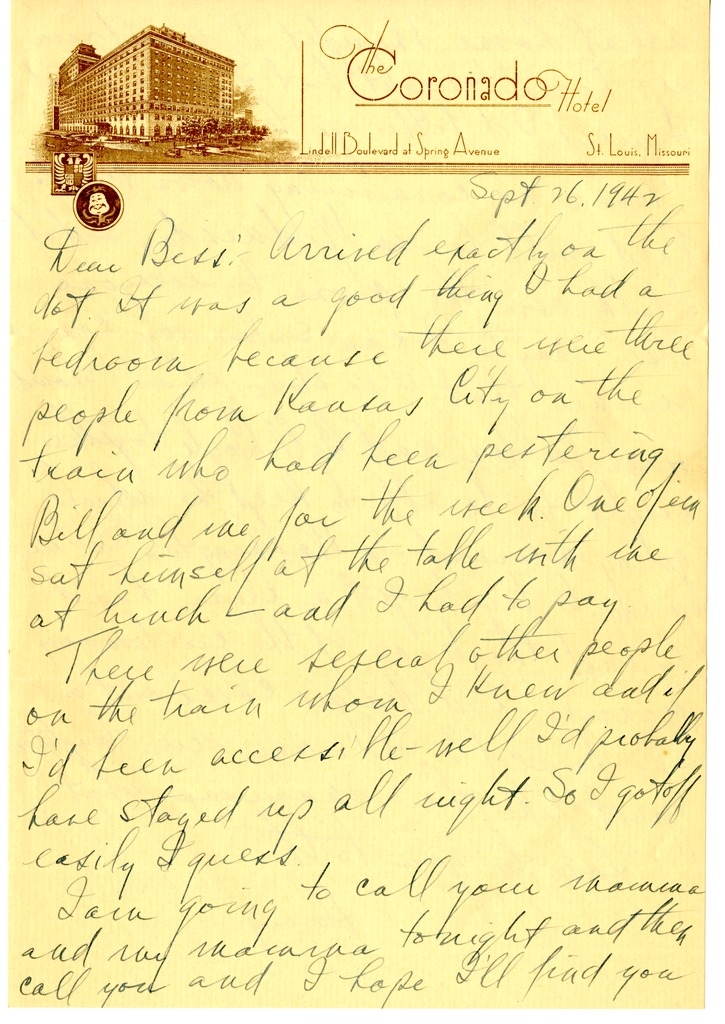 The Coronado Hotel
Lindell Boulevard at Spring Avenue
St. Louis, Missouri
Sept 26, 1942
Dear Bess:- Arrived exactly on the
dot. It was a good thing I had a
bedroom because there were three
people from Kansas City on the
train who had been pestering
Bill and me for the week. One of em
sat himself at the table with me
at lunch - and I had to pay.
There were several other people
on the train whom I knew and if
I'd been accessible - well I'd probally
have stayed up all night. So I got off
easily I guess.
I am going to call your mamma
and my mamma tonight and then
call you and I hope I'll find you